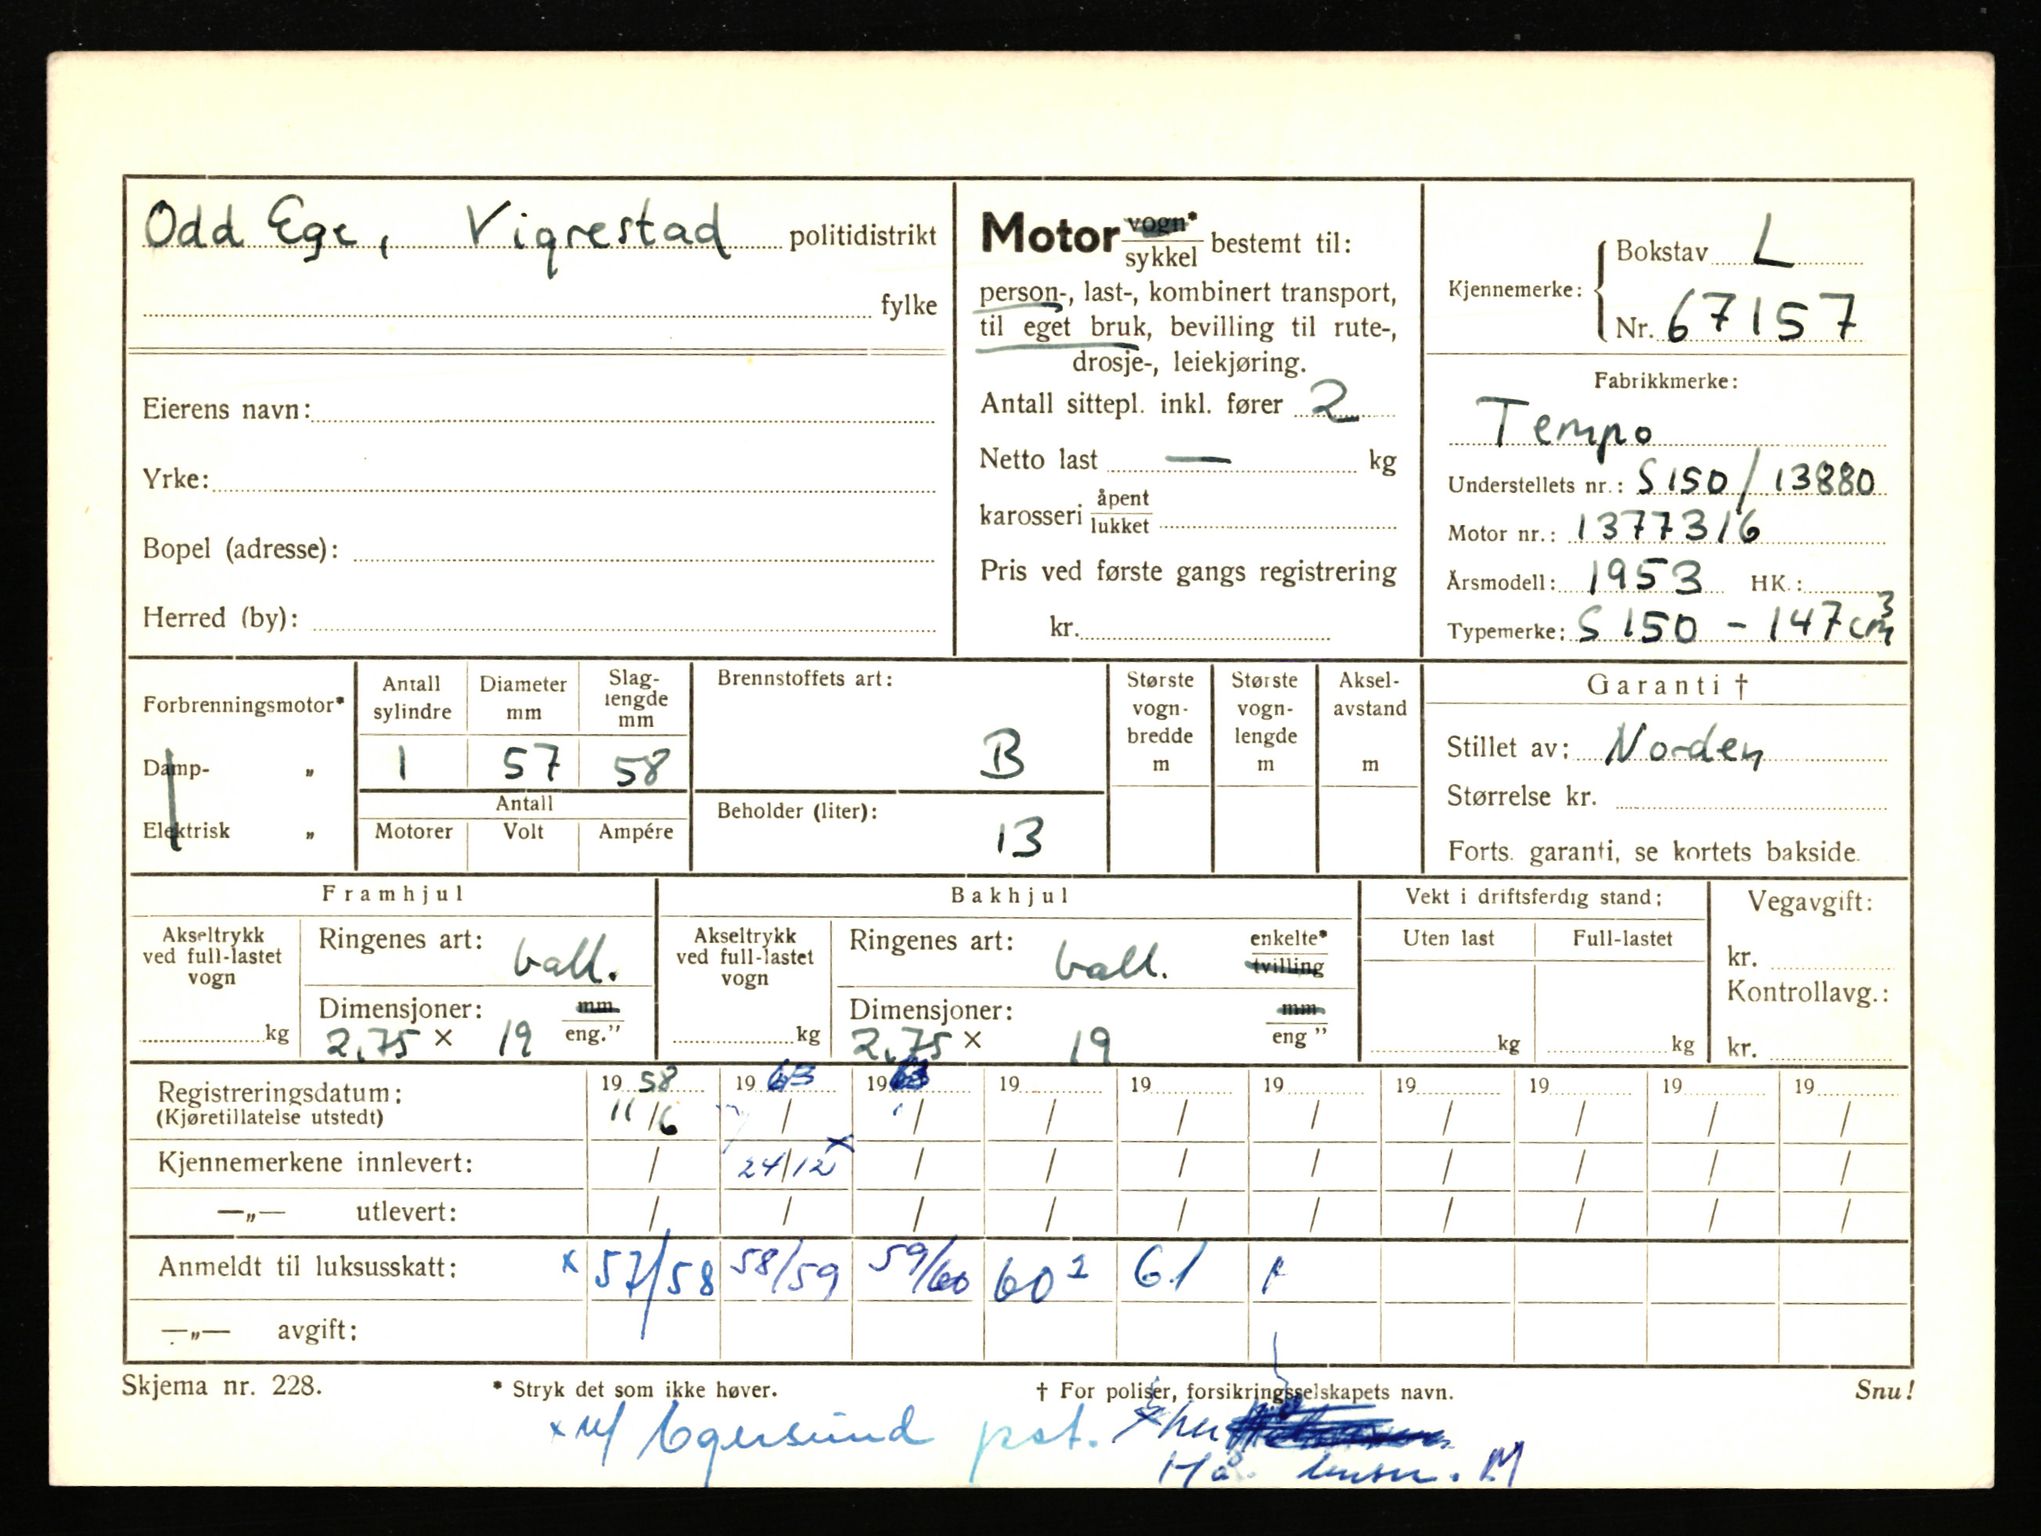 Odd Ege, Vigrestad politidistrikt
fylke
Eierens navn:
Yrke:
Bopel (adresse):
Herred (by):
Motor vogn* / sykkel bestemt til:
person-, last-, kombinert transport,
til eget bruk, bevilling til rute-,
drosje-, leiekjøring.
Antall sittepl. inkl. fører 2
Netto last — kg
karosseri åpent / lukket
Pris ved første gangs registrering
kr.
Kjennemerke: Bokstav L
Nr. 67157
Fabrikkmerke:
Tempo
Understellets nr.: S 150 / 13880
Motor nr.: 1377316
Årsmodell: 1953 HK.:
Typemerke: S 150 - 147 cm³
Forbrenningsmotor*
Damp- „
Elektrisk „
Antall sylindre Diameter mm Slag-lengde mm
1 57 58
Antall
Motorer Volt Ampére
Brennstoffets art:
B
Beholder (liter):
13
Største vogn-bredde m
Største vogn-lengde m
Aksel-avstand m
Garanti †
Stillet av: Norden
Størrelse kr.
Forts. garanti, se kortets bakside.
Framhjul
Akseltrykk ved full-lastet vogn
kg
Ringenes art: ball.
Dimensjoner: mm / eng."
2.75 × 19
Bakhjul
Akseltrykk ved full-lastet vogn
kg
Ringenes art: ball. enkelte* / tvilling
Dimensjoner: mm / eng "
2.75 × 19
Vekt i driftsferdig stand:
Uten last Full-lastet
kg kg
Vegavgift:
kr.
Kontrollavg.:
kr.
Registreringsdatum: 19 58 19 63 19 63 19 19 19 19 19 19 19
(Kjøretillatelse utstedt) 11/6 / / / / / / / / /
Kjennemerkene innlevert: / 24/12 x / / / / / / / /
—„— utlevert: / / / / / / / / / /
Anmeldt til luksusskatt: x 57/58 58/59 59/60 60² 61
—„— avgift:
Skjema nr. 228. * Stryk det som ikke høver. † For poliser, forsikringsselskapets navn. Snu!
x Egersund pst.
Hå